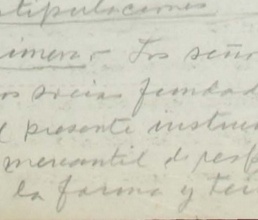 stipulaciones
imera.- Los seño
os socios fundad
l presente instru
mercantil de resp
la forma y tér